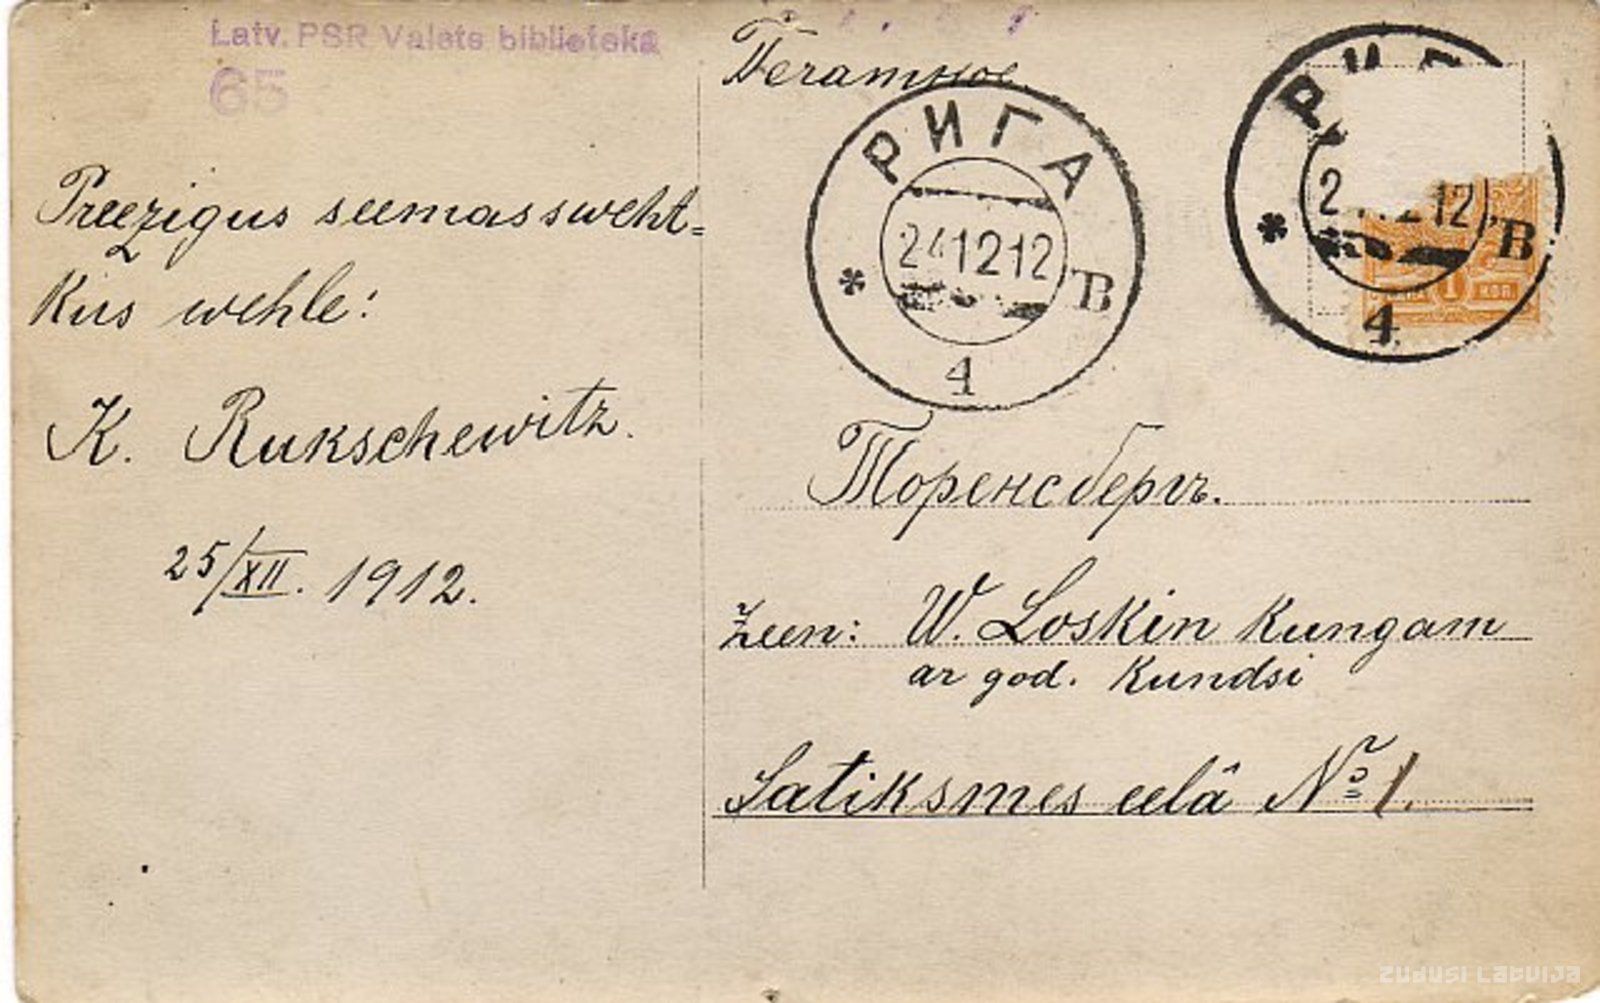 Latv. PSR Valsts bibliotēka
65
Preezigus seemassweht=
kus wehle:
K. Rukschewitz.
25/XII. 1912.
Печатное.
РИГА
24 12 12
* В
4
РИГ
2 12 12
* В
4
1 КОП.
Торенсбергъ.
Zeen: W. Loskin kungam
ar god. kundsi
Satiksmes eelâ № 1.
zudusi latvija